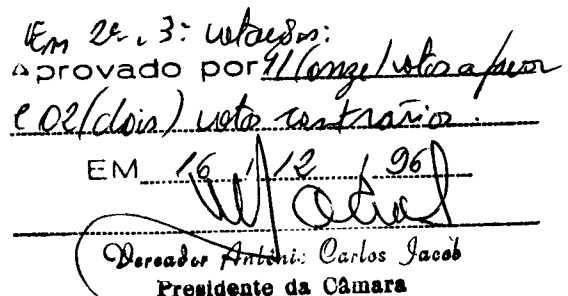 Em 2ª. 3ª votações:
Aprovado por 11 (onze) votos a favor
e 02 (dois) votos contrários.
EM 16 / 12 / 96
Vereador Antôni: Carlos Jacob
Presidente da Câmara